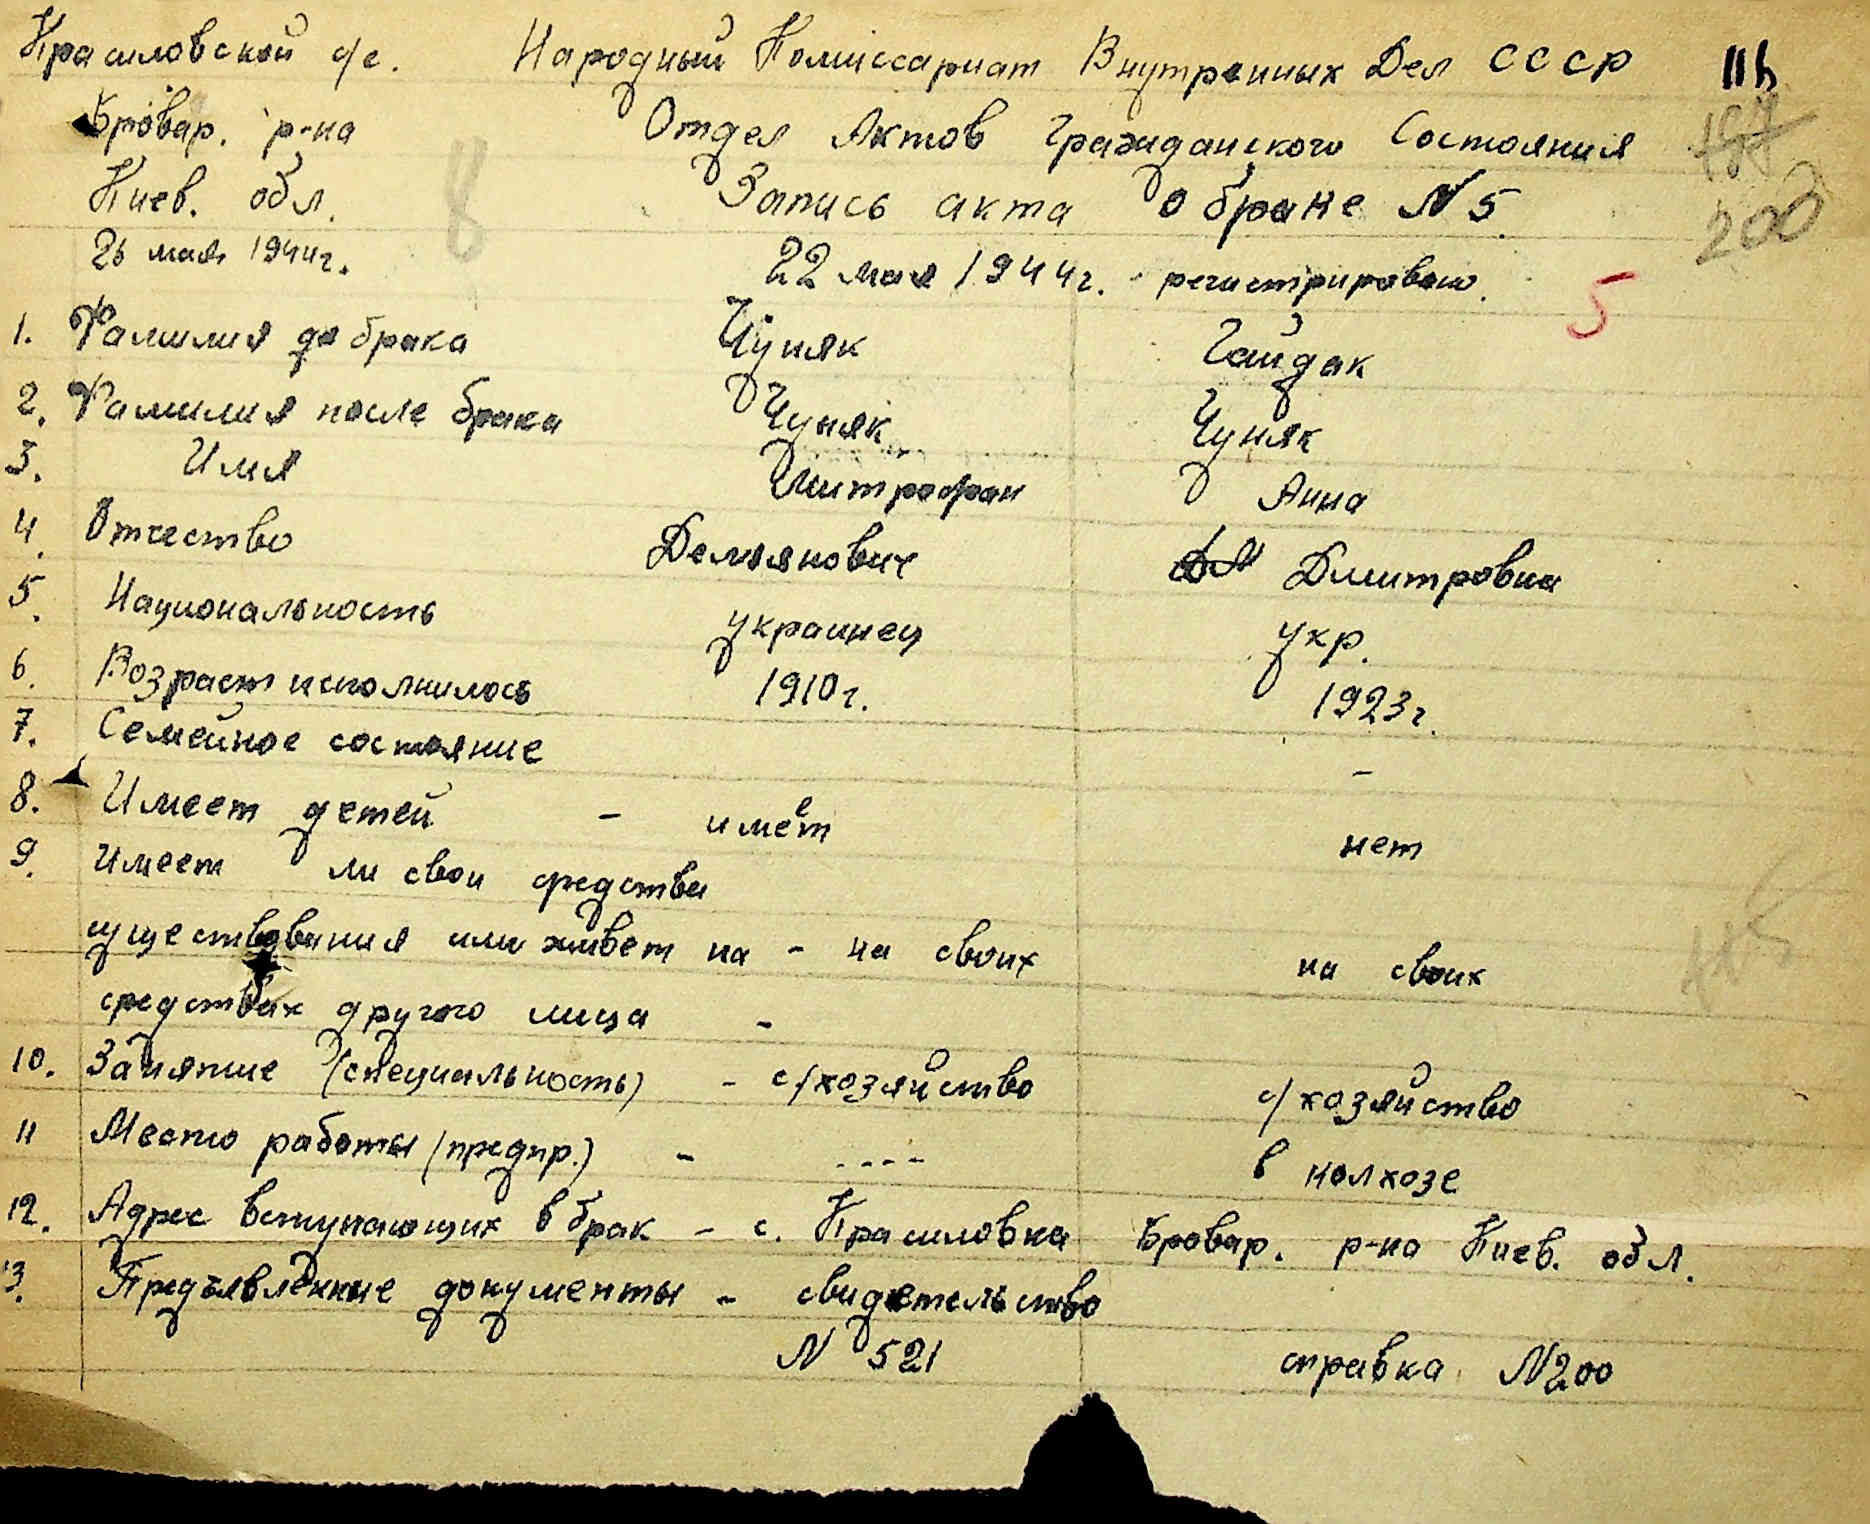 Красиловской с/с. Народный Комиссариат Внутренних Дел СССР
Бровар. р-на Отдел Актов Гражданского Состояния
Киев. обл. Запись акта о браке N 5.
26 мая 1944г. 22 мая 1944г. регистрировано.
8
200
5
1. Фамилия до брака Чуняк Гайдак
2. Фамилия после брака Чуняк Чуняк
3. Имя Митрофан Анна
4. Отчество Демянович Дмитровна
5. Национальность украинец укр.
6. Возраст исполнилось 1910г. 1923г.
7. Семейное состояние -
8. Имеет детей - имеет нет
9. Имеет ли свои средства
существования или живет на - на своих на своих
средствах другого лица -
10. Занятие (специальность) - с/хозяйство с/хозяйство
11 Место работы (предпр.) - ---- в колхозе
12. Адрес вступающих в брак - с. Красиловка Бровар. р-на Киев. обл.
13. Предъявленные документы - свидетельство
N 521 справка N200